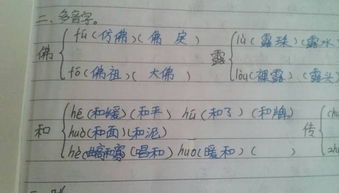 二、多音字。
佛 fú(仿佛)(佛 戾) 露 lù(露珠)(露水
fó(佛祖)( 大佛) lòu(裸露)(露头
和 hé(和缓)(和平) hú(和了)(和牌
huó(和面)(和泥) 传
hè (唱和) huo(暖和)( )